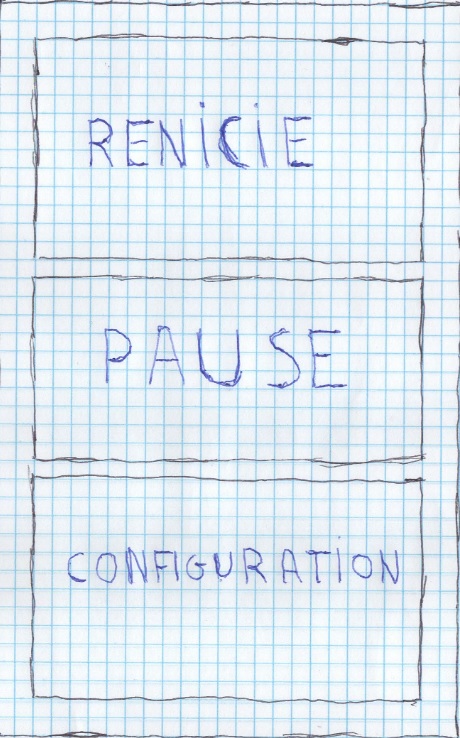 RENiCiE
PAUSE
CONFIGURATiON